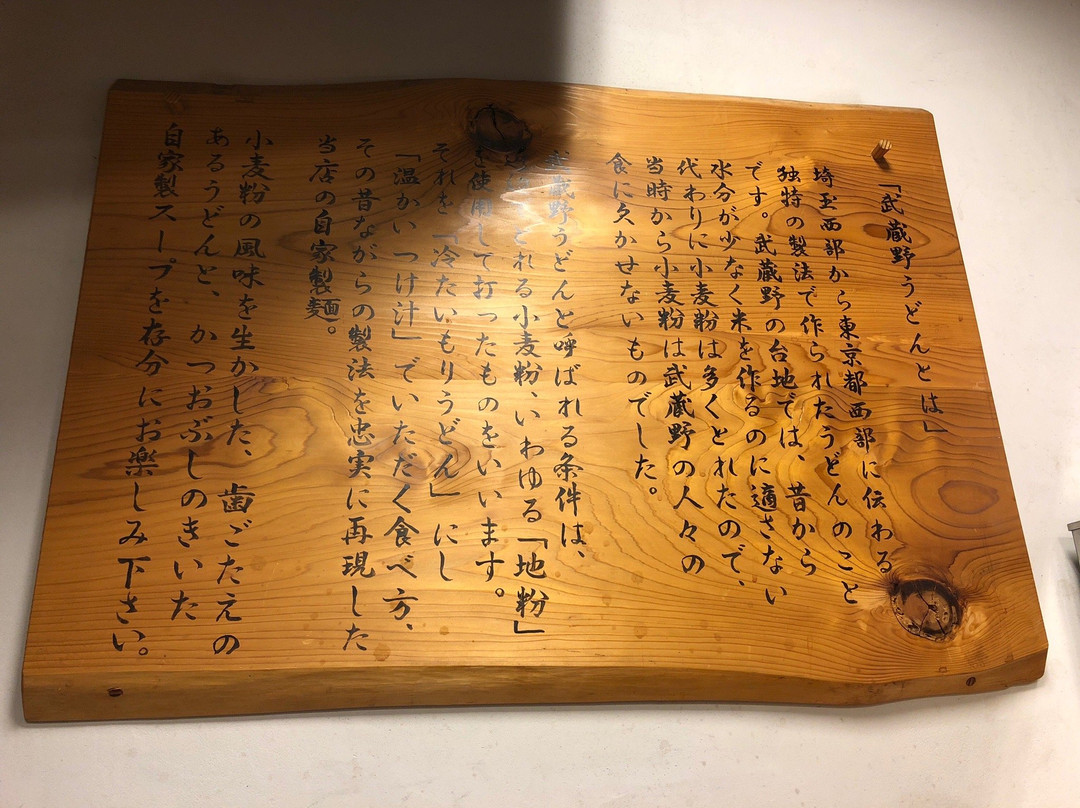 「武蔵野うどんとは」
埼玉西部から東京都西部に伝わる
独特の製法で作られたうどんのこと
です。武蔵野の台地では、昔から
水分が少なく米を作るのに適さない
代わりに小麦粉は多くとれたので、
当時から小麦粉は武蔵野の人々の
食に欠かせないものでした。
武蔵野うどんと呼ばれる条件は、
とれる小麦粉、いわゆる「地粉」
を使用して打ったものをいいます。
それを「冷たいもりうどん」にし
「温かいつけ汁」でいただく食べ方、
その昔ながらの製法を忠実に再現した
当店の自家製麺。
小麦粉の風味を生かした、歯ごたえの
あるうどんと、かつおぶしのきいた
自家製スープを存分にお楽しみ下さい。